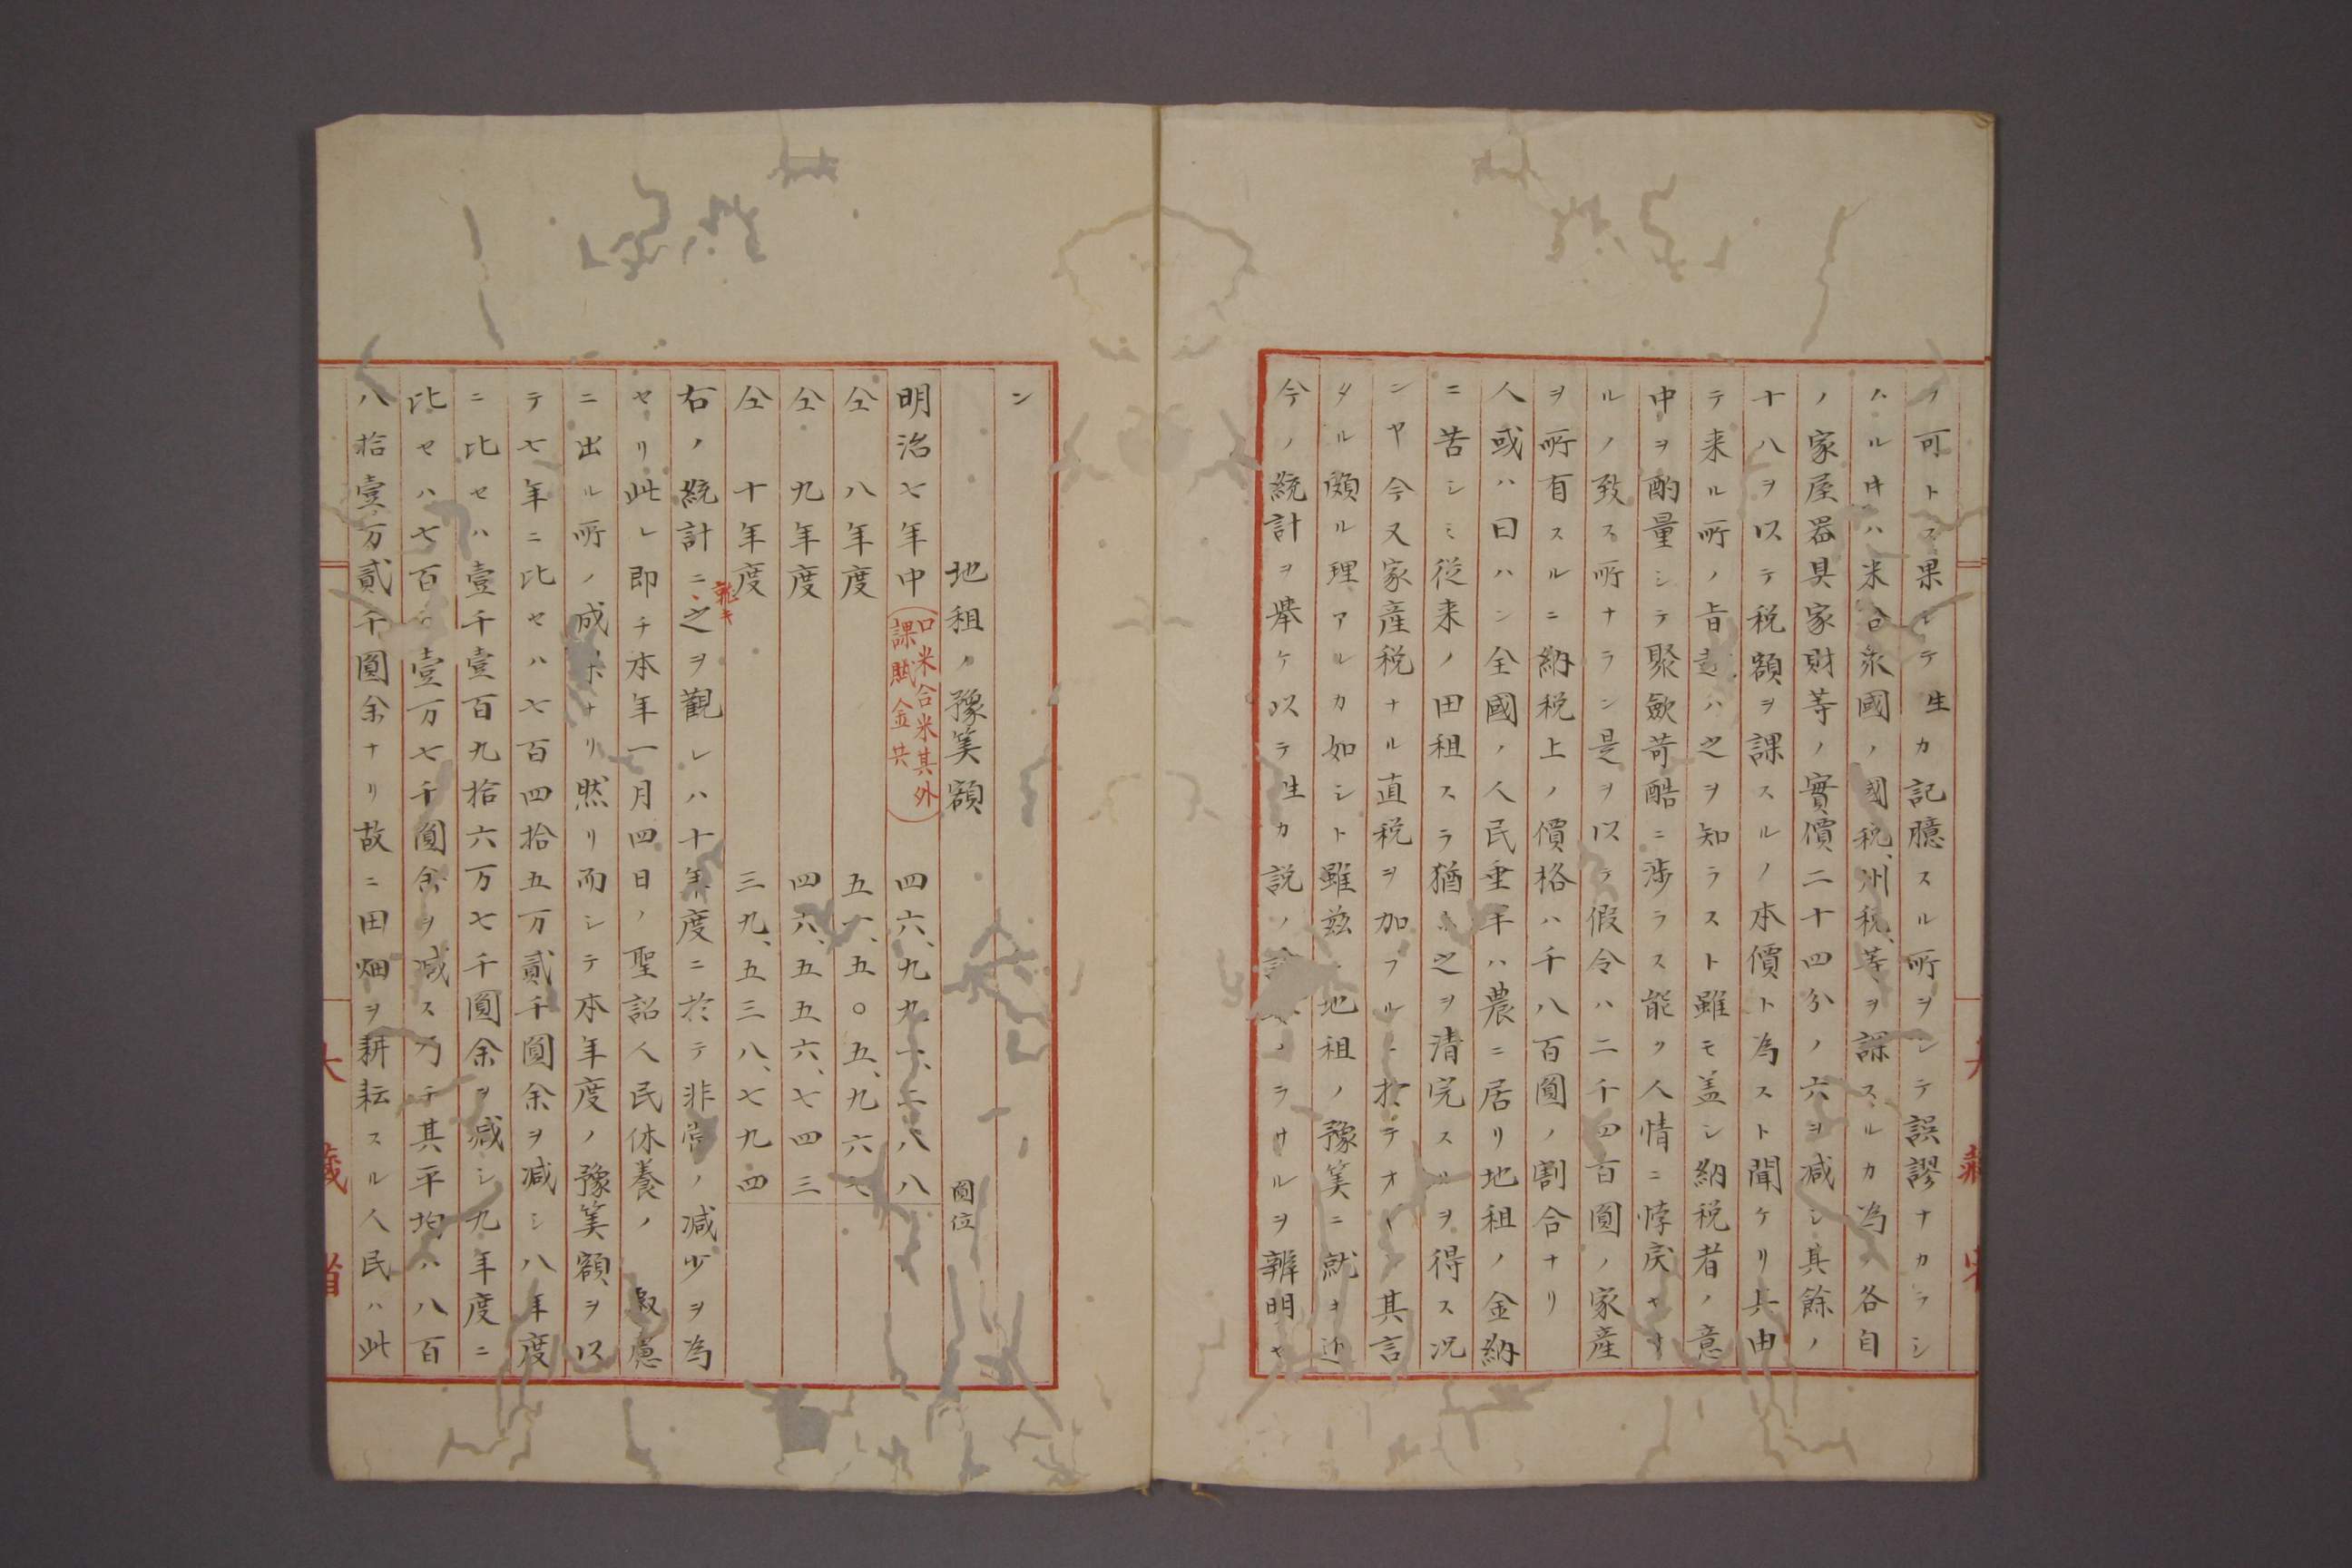 ノ可トス果シテ生カ記臆スル所ヲシテ誤謬ナカラシ
ハ米合衆國ノ國税、州税、等ヲ課スルカ為メ各自
ノ家屋器具家財等ノ實價二十四分ノ六ヲ減シ其餘ノ
十八ヲ以テ税額ヲ課スルノ本價ト為スト聞ケリ其由
テ来ル所ノ旨ハ之ヲ知ラスト雖モ盖シ納税者ノ意
中ヲ酌量シテ聚歛苛酷ニ渉ラス能ク人情ニ悖戻セサ
ルノ致ス所ナラン是ヲ以テ假令ハ二千四百圓ノ家産
ヲ所有スルニ納税上ノ價格ハ千八百圓ノ割合ナリ
人或ハ曰ハン全國ノ人民埀半ハ農ニ居リ地租ノ金納
ニ苦シミ従来ノ田租スラ猶之ヲ清完スルヲ得ス况
ンヤ今又家産税ナル直税ヲ加フルニ於テオヤ其言
タル頗ル理アルカ如シト雖茲地租ノ豫筭ニ就キ近
今ノ統計ヲ擧ケ以テ生カ説ノラサルヲ辨明セ
大藏省
ン
地租ノ豫筭額 圓位
明治七年中(口米合米其外課賦金共) 四六、九九一、二八八
仝八年度 五一、五〇五、九六七
仝九年度 四六、五五六、七四三
仝十年度 三九、五三八、七九四
右ノ統計ニ就キ之ヲ觀レハ十年度ニ於テ非常ノ减少ヲ為
セリ此レ即チ本年一月四日ノ聖詔人民休養ノ叡慮
ニ出ル所ノ成ナリ然リ而シテ本年度ノ豫筭額ヲ以
テ七年ニ比セハ七百四拾五万貳千圓余ヲ减シ八年度
ニ比セハ壹千壹百九拾六万七千圓余ヲ减シ九年度ニ
比セハ七百壹万七千圓余ヲ减ス乃チ其平均ハ八百
八拾壹万貳千圓余ナリ故ニ田畑ヲ耕耘スル人民ハ此
大藏省